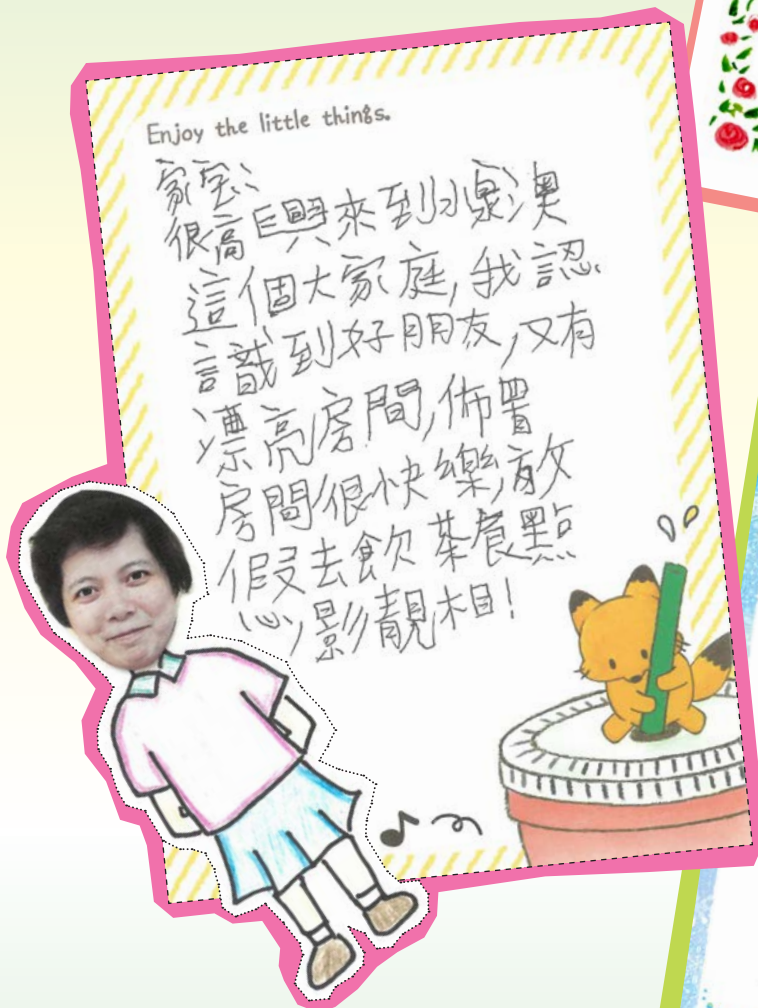 Enjoy the little things.
家宝：
很高興來到水泉澳
這個大家庭，我認
識到好朋友，又有
漂亮房間，佈置
房間很快樂，放
假去飲茶食點
心，影靚相！